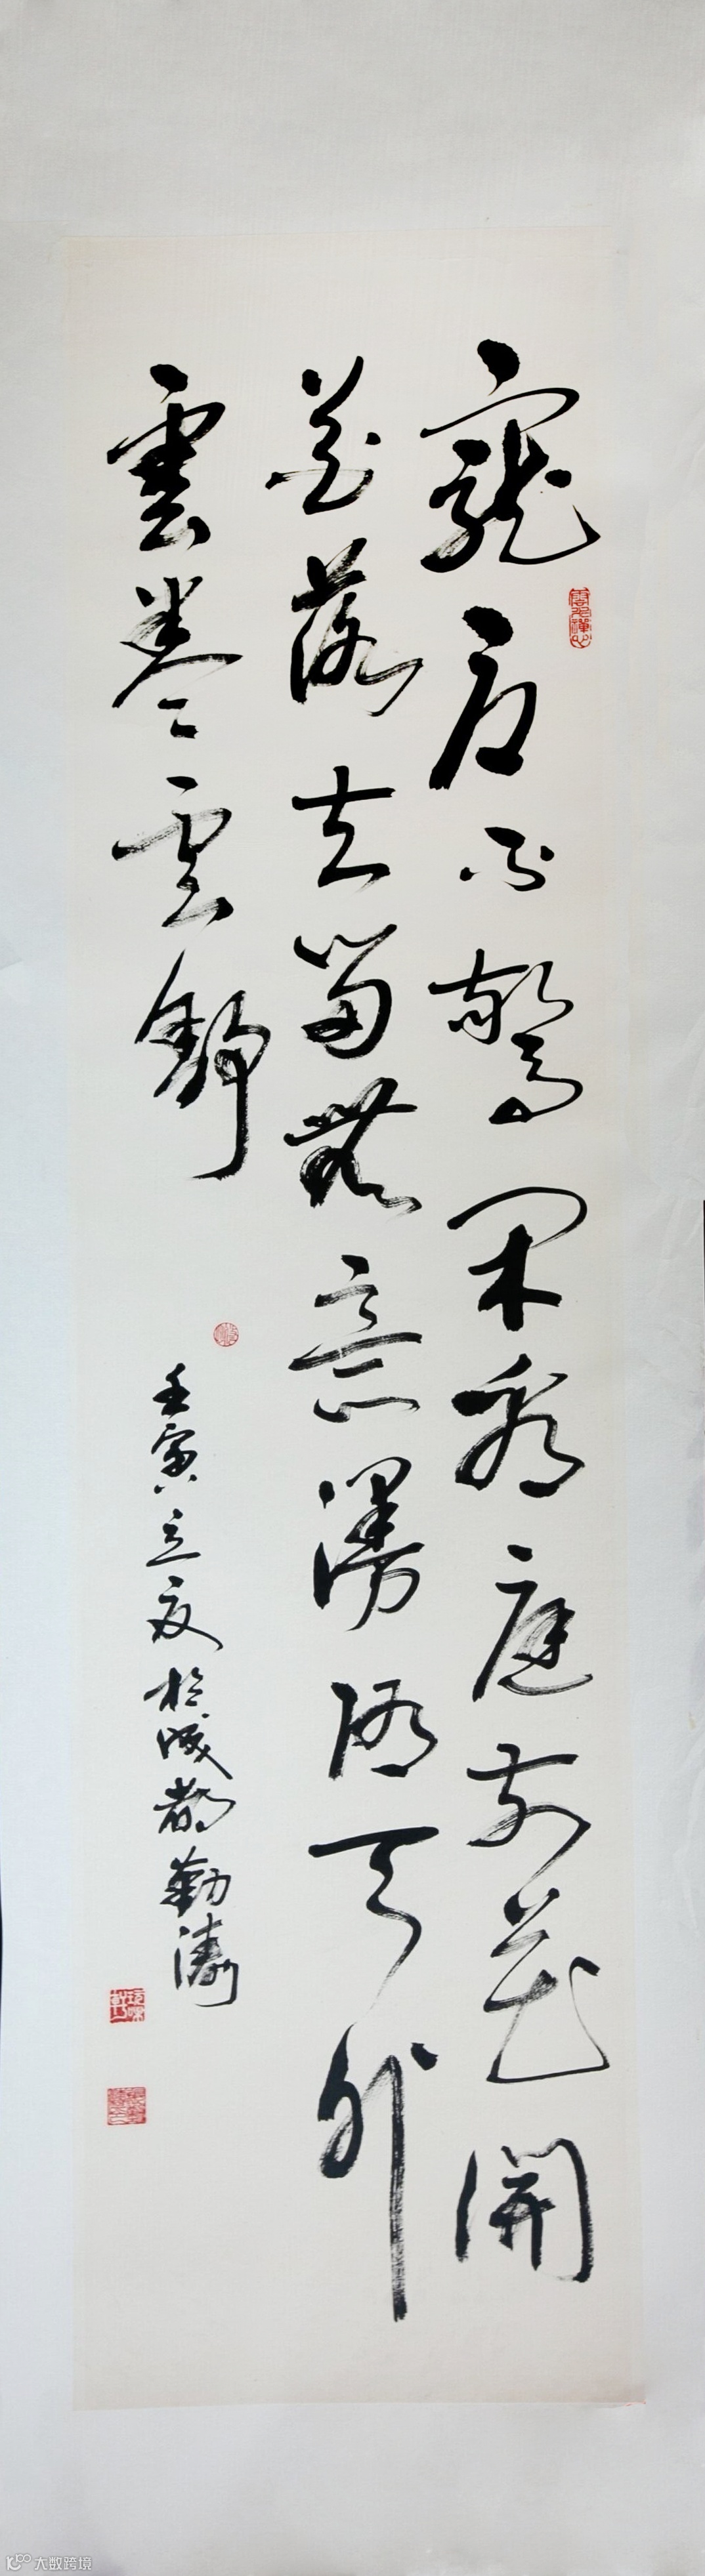 寵辱不驚閑看庭前花開
花落去留無意漫隨天外
雲卷雲舒
壬寅立夏於成都勤濤
大数跨境